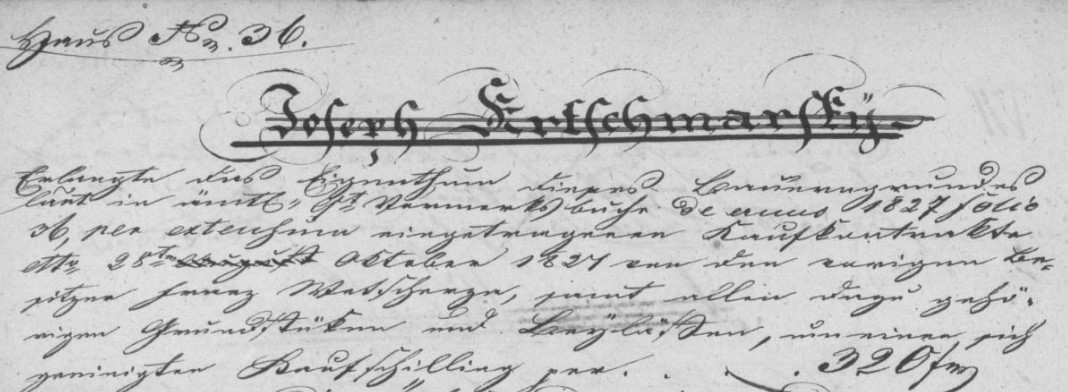 Haus No. 36.
Joseph Krtschmarskÿ
Erlangte das Eigenthum dieses Bauerngrundes
laut in amtl. Vermerksbuche de anno 1827 folio
36, per extensum eingetragenen Kaufkontrakte
dto 28ten August Oktober 1827 von den vorigen Be-
sitzer Franz Wetscherza, samt allen dazu gehö-
rigen Grundstüken und Beÿlässen, um einen sich
geeinigten Kaufschilling per . . . 320 f